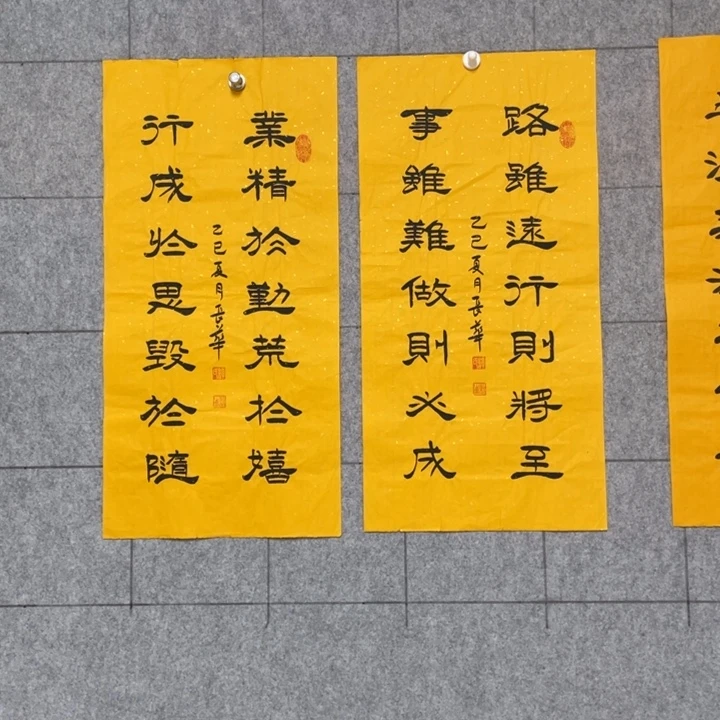 路雖遠行則將至
事雖難做則必成
乙巳夏月長華
業精於勤荒於嬉
行成於思毀於隨
乙巳夏月長華